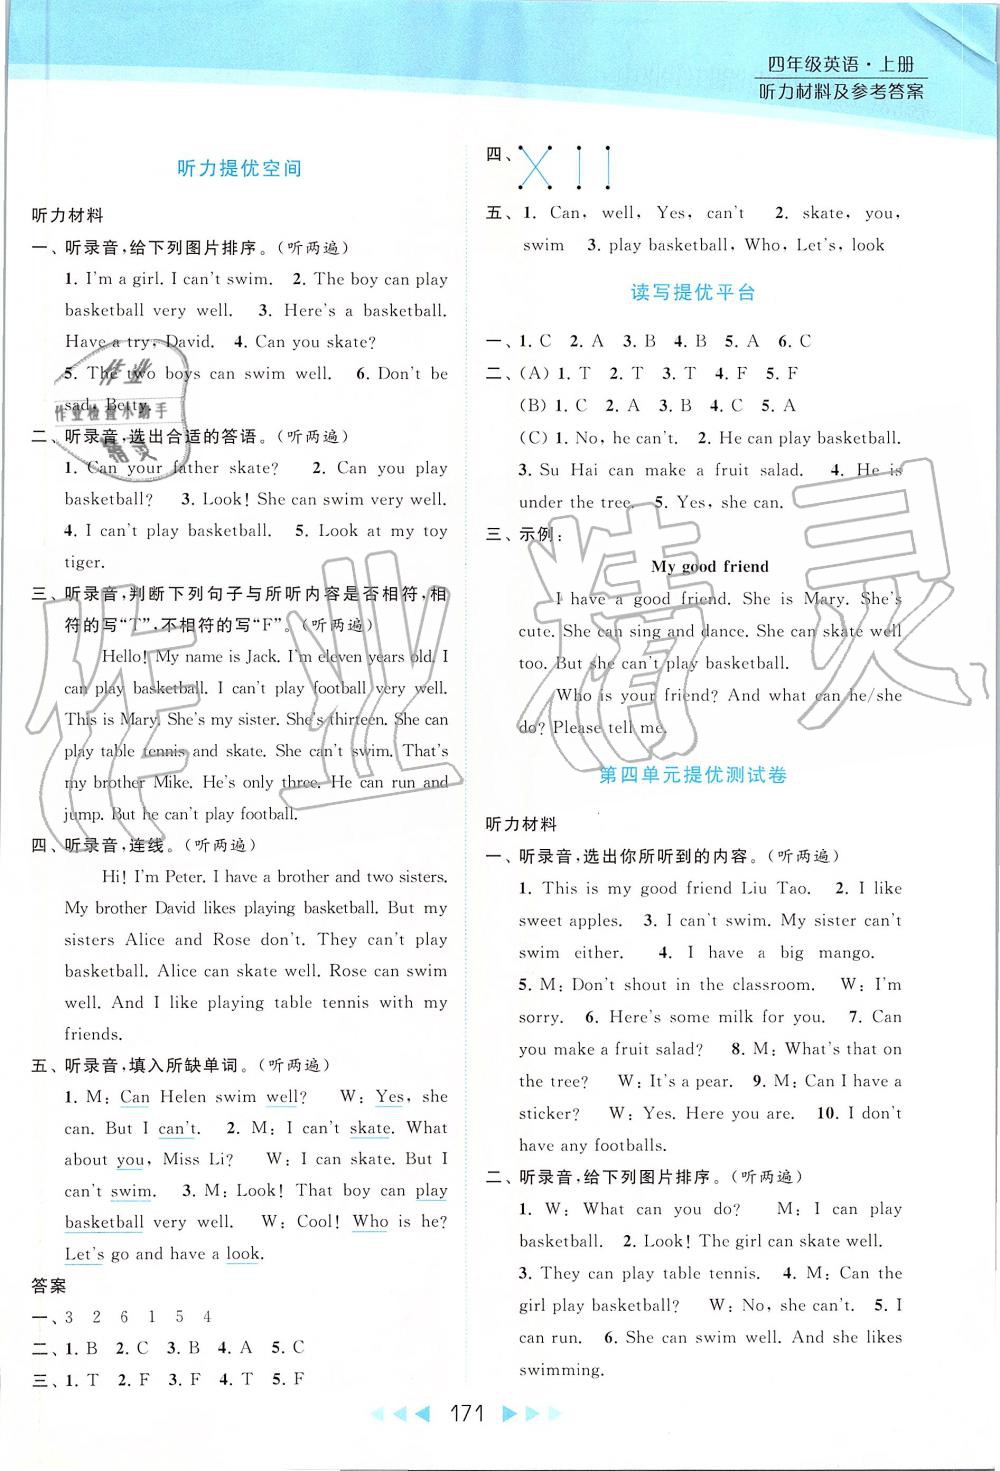 四年级英语·上册
听力材料及参考答案
听力提优空间
听力材料
一、听录音,给下列图片排序。(听两遍)
1. I'm a girl. I can't swim. 2. The boy can play
basketball very well. 3. Here's a basketball.
Have a try, David. 4. Can you skate?
5. The two boys can swim well. 6. Don't be
sad, Betty.
二、听录音,选出合适的答语。(听两遍)
1. Can your father skate? 2. Can you play
basketball? 3. Look! She can swim very well.
4. I can't play basketball. 5. Look at my toy
tiger.
三、听录音,判断下列句子与所听内容是否相符,相
符的写“T”,不相符的写“F”。(听两遍)
Hello! My name is Jack. I'm eleven years old. I
can play basketball. I can't play football very well.
This is Mary. She's my sister. She's thirteen. She can
play table tennis and skate. She can't swim. That's
my brother Mike. He's only three. He can run and
jump. But he can't play football.
四、听录音,连线。(听两遍)
Hi! I'm Peter. I have a brother and two sisters.
My brother David likes playing basketball. But my
sisters Alice and Rose don't. They can't play
basketball. Alice can skate well. Rose can swim
well. And I like playing table tennis with my
friends.
五、听录音,填入所缺单词。(听两遍)
1. M: Can Helen swim well? W: Yes, she
can. But I can't. 2. M: I can't skate. What
about you, Miss Li? W: I can skate. But I
can't swim. 3. M: Look! That boy can play
basketball very well. W: Cool! Who is he?
Let's go and have a look.
答案
一、3 2 6 1 5 4
二、1. B 2. C 3. B 4. A 5. C
三、1. T 2. F 3. F 4. T 5. F
四、
五、1. Can, well, Yes, can't 2. skate, you,
swim 3. play basketball, Who, Let's, look
读写提优平台
一、1. C 2. A 3. B 4. B 5. A 6. C
二、(A) 1. T 2. T 3. T 4. F 5. F
(B) 1. C 2. A 3. B 4. C 5. A
(C) 1. No, he can't. 2. He can play basketball.
3. Su Hai can make a fruit salad. 4. He is
under the tree. 5. Yes, she can.
三、示例:
My good friend
I have a good friend. She is Mary. She's
cute. She can sing and dance. She can skate well
too. But she can't play basketball.
Who is your friend? And what can he/she
do? Please tell me.
第四单元提优测试卷
听力材料
一、听录音,选出你所听到的内容。(听两遍)
1. This is my good friend Liu Tao. 2. I like
sweet apples. 3. I can't swim. My sister can't
swim either. 4. I have a big mango.
5. M: Don't shout in the classroom. W: I'm
sorry. 6. Here's some milk for you. 7. Can
you make a fruit salad? 8. M: What's that on
the tree? W: It's a pear. 9. M: Can I have a
sticker? W: Yes. Here you are. 10. I don't
have any footballs.
二、听录音,给下列图片排序。(听两遍)
1. W: What can you do? M: I can play
basketball. 2. Look! The girl can skate well.
3. They can play table tennis. 4. M: Can the
girl play basketball? W: No, she can't. 5. I
can run. 6. She can swim well. And she likes
swimming.
171
作业
作业检查小助手
精灵
作业精灵